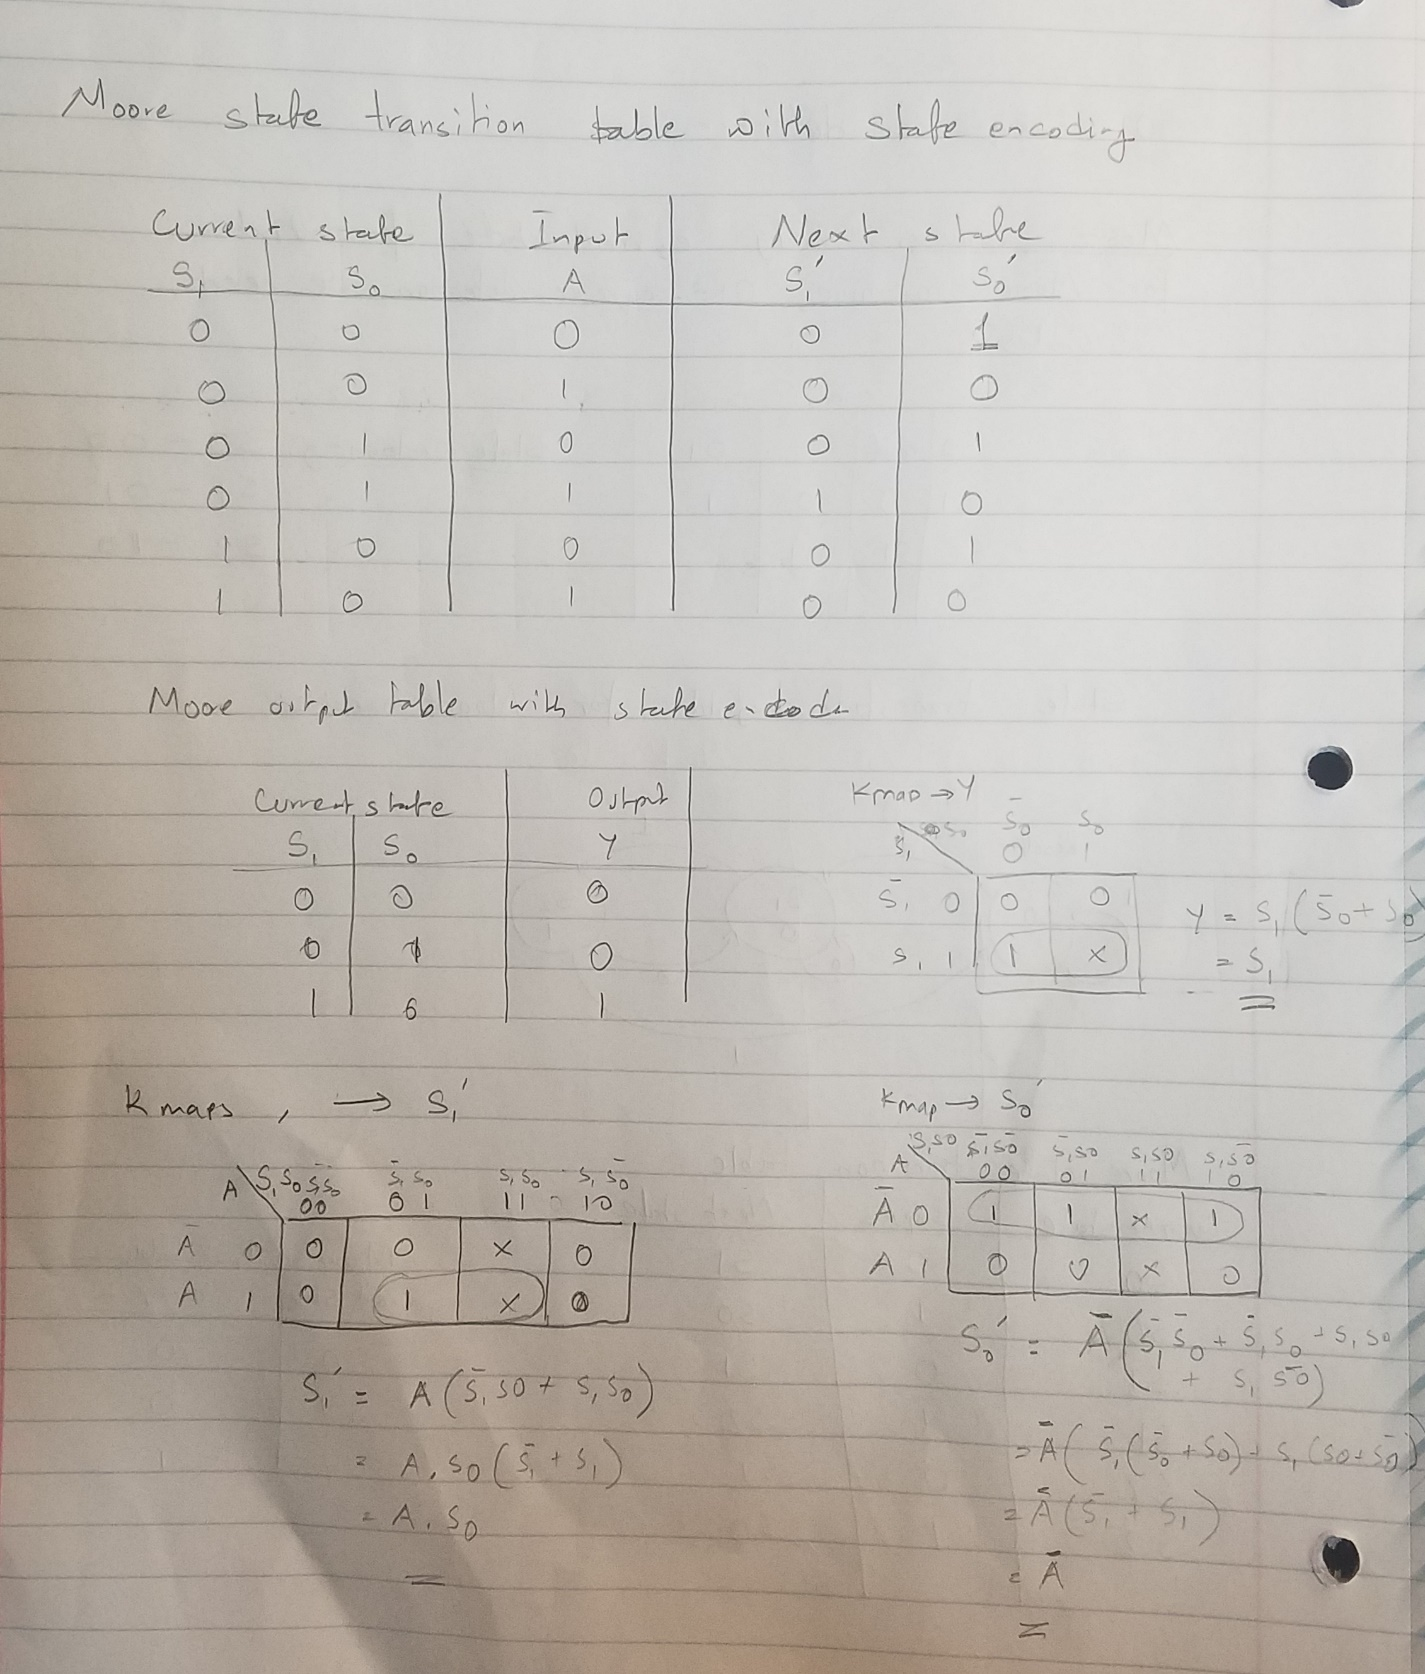 Moore state transition table with state encoding
Current state Input Next state
S₁ S₀ A S₁' S₀'
0 0 0 0 1
0 0 1 0 0
0 1 0 0 1
0 1 1 1 0
1 0 0 0 1
1 0 1 0 0
Moore output table with state encode
Current state Output
S₁ S₀ Y
0 0 0
0 1 0
1 0 1
Kmap → Y
S₁ S₀ S̄₀ S₀
0 1
S̄₁ 0 0 0
S₁ 1 1 x
Y = S₁ (S̄₀ + S₀)
= S₁
Kmaps , → S₁'
A S₁S₀ S̄₁S̄₀ S̄₁S₀ S₁S₀ S₁S̄₀
00 01 11 10
Ā 0 0 0 x 0
A 1 0 1 x 0
S₁' = A (S̄₁S0 + S₁S₀)
= A . S0 (S̄₁ + S₁)
= A . S0
Kmap → S₀'
A S₁S0 S̄₁S̄0 S̄₁S0 S₁S0 S₁S̄0
00 01 11 10
Ā 0 1 1 x 1
A 1 0 0 x 0
S₀' = Ā (S̄₁S̄₀ + S̄₁S₀ + S₁S0
+ S₁S̄0)
= Ā (S̄₁(S̄₀ + S0) + S₁(S0 + S̄0))
= Ā (S̄₁ + S₁)
= Ā